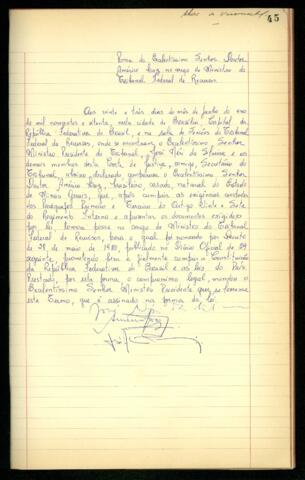 45
Termo do Excelentíssimo Senhor Doutor
Américo Luz no cargo de Ministro do
Tribunal Federal de Recursos.
Aos vinte e três dias do mês de junho do ano
de mil novecentos e oitenta, nesta cidade de Brasília, Capital da
República Federativa do Brasil, e na sala de Sessões do Tribunal
Federal de Recursos, onde se encontravam o Excelentíssimo Senhor
Ministro Presidente do Tribunal, José Néri da Silveira e os
demais membros desta Corte de Justiça, comigo, Secretário do
Tribunal, abaixo declarado, compareceu o Excelentíssimo Senhor
Doutor Américo Luz, brasileiro, casado, natural do Estado
de Minas Gerais, que, após cumprir as exigências contidas
dos Parágrafos Primeiro e Terceiro do Artigo Vinte e Sete
do Regimento Interno e apresentar os documentos exigidos
por lei, tomou posse no cargo de Ministro do Tribunal
Federal de Recursos, para o qual foi nomeado por Decreto
de 28 de maio de 1980, publicado no Diário Oficial de 29
seguinte, prometendo bem e fielmente cumprir a Constituição
da República Federativa do Brasil e as leis do País.
Prestado, por esta forma, o compromisso legal, mandou o
Excelentíssimo Senhor Ministro Presidente que se lavrasse
este Termo, que é assinado na forma da lei.